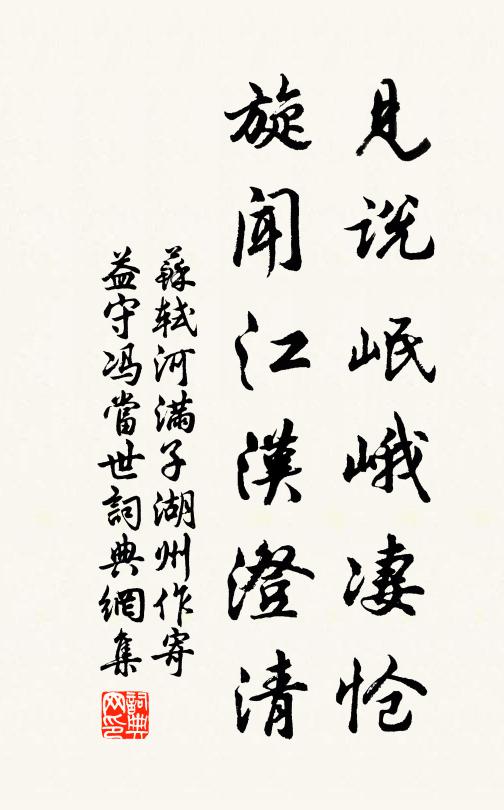 見説岷峨凄愴
旋聞江漢澄清
蘇軾河滿子湖州作寄
益守冯當世詞典網集
詞典网印